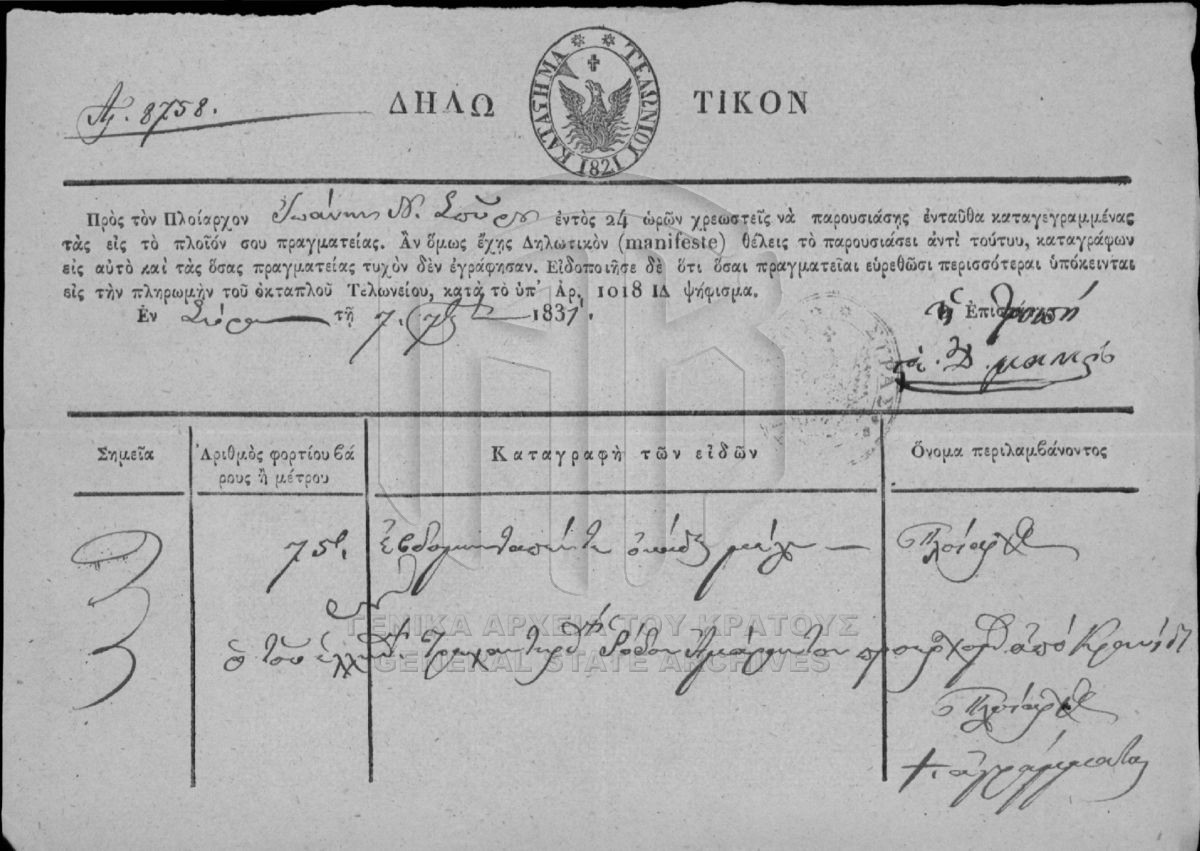 Αρ. 8758.
ΔΗΛΩ ΤΙΚΟΝ
ΚΑΤΑΣΤΗΜΑ ΤΕΛΩΝΙΟΥ 1821
Πρὸς τὸν Πλοίαρχον Ἰωάννης Ν. ἐντὸς 24 ὡρῶν χρεωστεῖς νὰ παρουσιάσῃς ἐνταῦθα καταγεγραμμένας
τὰς εἰς τὸ πλοῖόν σου πραγματείας. Ἂν ὅμως ἔχῃς Δηλωτικὸν (manifeste) θέλεις τὸ παρουσιάσει ἀντὶ τούτυυ, καταγράφων
εἰς αὐτὸ καὶ τὰς ὅσας πραγματείας τυχὸν δὲν ἐγράφησαν. Εἰδοποιῆσε δὲ ὅτι ὅσαι πραγματεῖαι εὑρεθῶσι περισσότεραι ὑπόκεινται
εἰς τὴν πληρωμὴν τοῦ ὀκταπλοῦ Τελωνείου, κατὰ τὸ ὑπ' Ἀρ, 1018 ΙΔ ψήφισμα.
Ἐν Σύρᾳ τῇ 7. 1831.
Σημεῖα
Ἀριθμὸς φορτίου βά
ρους ἢ μέτρου
Καταγραφὴ τῶν εἰδῶν
Ὄνομα περιλαμβάνοντος
75 ἑβδομηνταπέντε ὀκάδες μέλι Πλοίαρχος
ΓΕΝΙΚΑ ΑΡΧΕΙΑ ΤΟΥ ΚΡΑΤΟΥΣ
ὁ τοῦ ἀπὸ Κρανίδι
GENERAL STATE ARCHIVES
Πλοίαρχος
ἀγράμματος